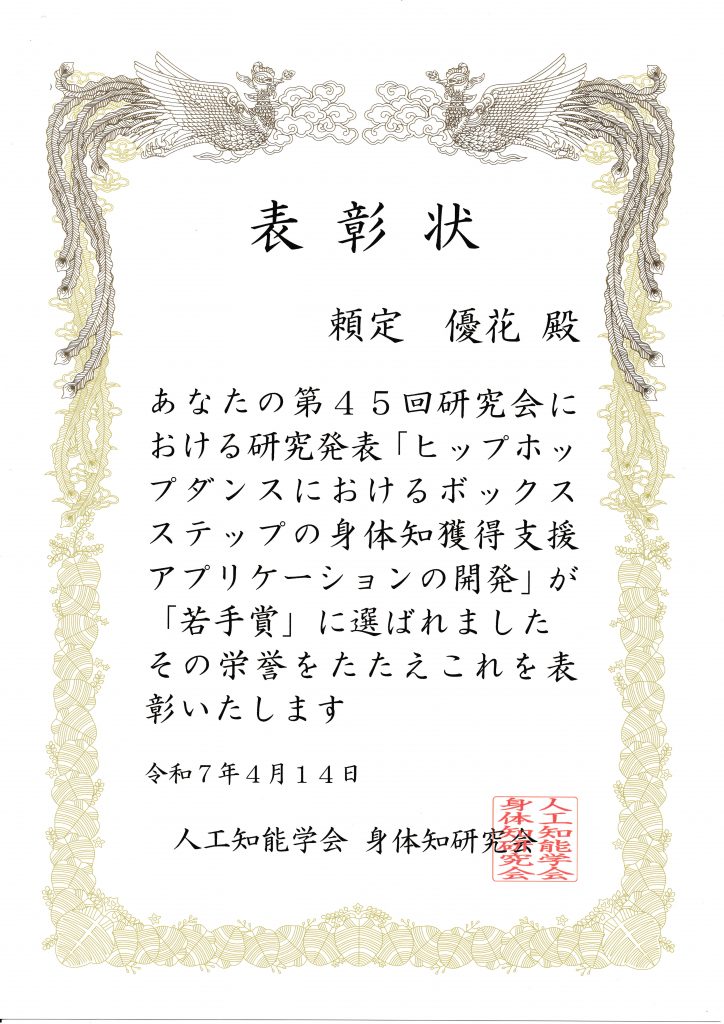 表彰状
頼定　優花 殿
あなたの第４５回研究会に
おける研究発表「ヒップホッ
プダンスにおけるボックス
ステップの身体知獲得支援
アプリケーションの開発」が
「若手賞」に選ばれました
その栄誉をたたえこれを表
彰いたします
令和７年４月１４日
人工知能学会 身体知研究会
人工知能学会
身体知研究会